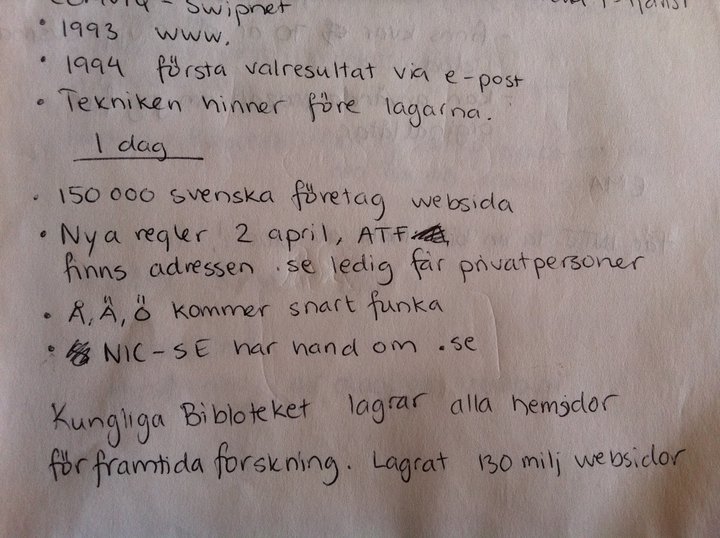 - Swipnet
• 1993 www.
• 1994 första valresultat via e-post
• Tekniken hinner före lagarna.
I dag
• 150 000 svenska företag websida
• Nya regler 2 april, ATF
finns adressen .se ledig får privatpersoner
• Å, Ä, Ö kommer snart funka
• NIC-SE har hand om .se
Kungliga Bibloteket lagrar alla hemsidor
för framtida forskning. Lagrat 130 milj websidor